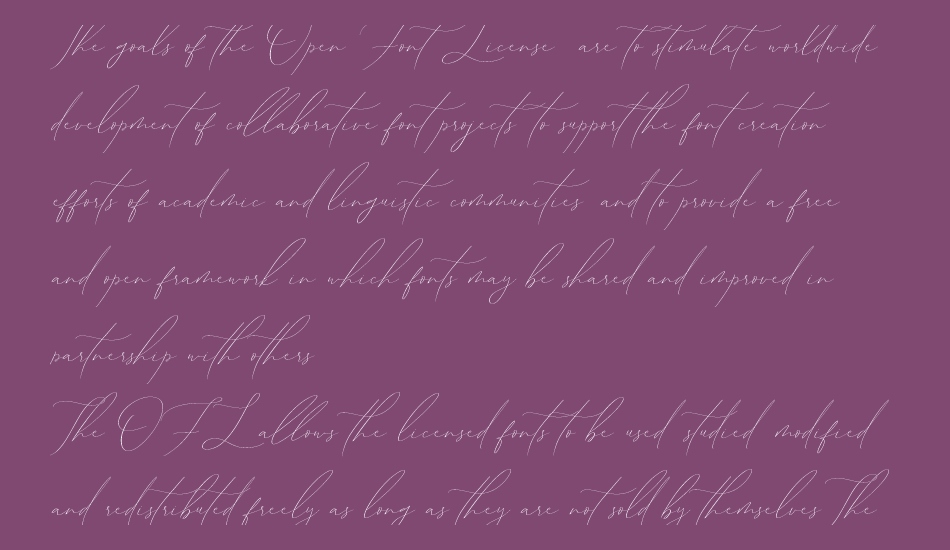 The goals of the Open Font License are to stimulate worldwide
development of collaborative font projects to support the font creation
efforts of academic and linguistic communities and to provide a free
and open framework in which fonts may be shared and improved in
partnership with others
The OFL allows the licensed fonts to be used studied modified
and redistributed freely as long as they are not sold by themselves The